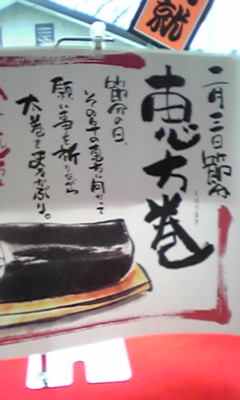 就
二月三日節分
恵方巻
えほうまき
節分の日、
その年の恵方に向かって
願い事を祈りながら
太巻をまるかぶり。